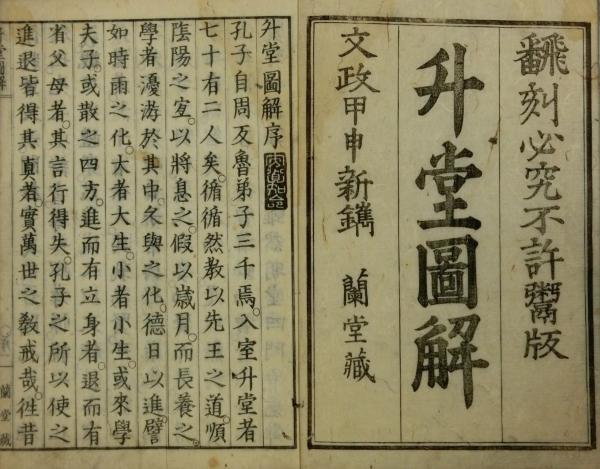 飜刻必究不許鬻版
升堂圖解
文政甲申新鐫　蘭堂藏
升堂圖解序
孔子自周反魯弟子三千焉。入室升堂者
七十有二人矣。循循然教以先王之道。順
陰陽之宜。以將息之。假以歲月。而長養之。
學者優游於其中。久與之化。德日以進。譬
如時雨之化。大者大生。小者小生。或來學
夫子。或散之四方。進而有立身者。退而有
省父母者。其言行得失。孔子之所以使之
進退皆得其眞者。實萬世之教戒哉。徃昔
蘭堂藏